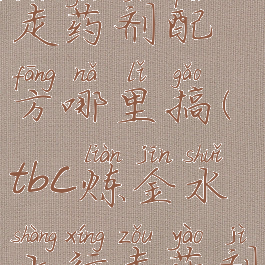 走药剂配
fāng nǎ lǐ gǎo
方哪里搞(
liàn jīn shuǐ
tbc炼金水
shàng xíng zǒu yào jì
上行走药剂